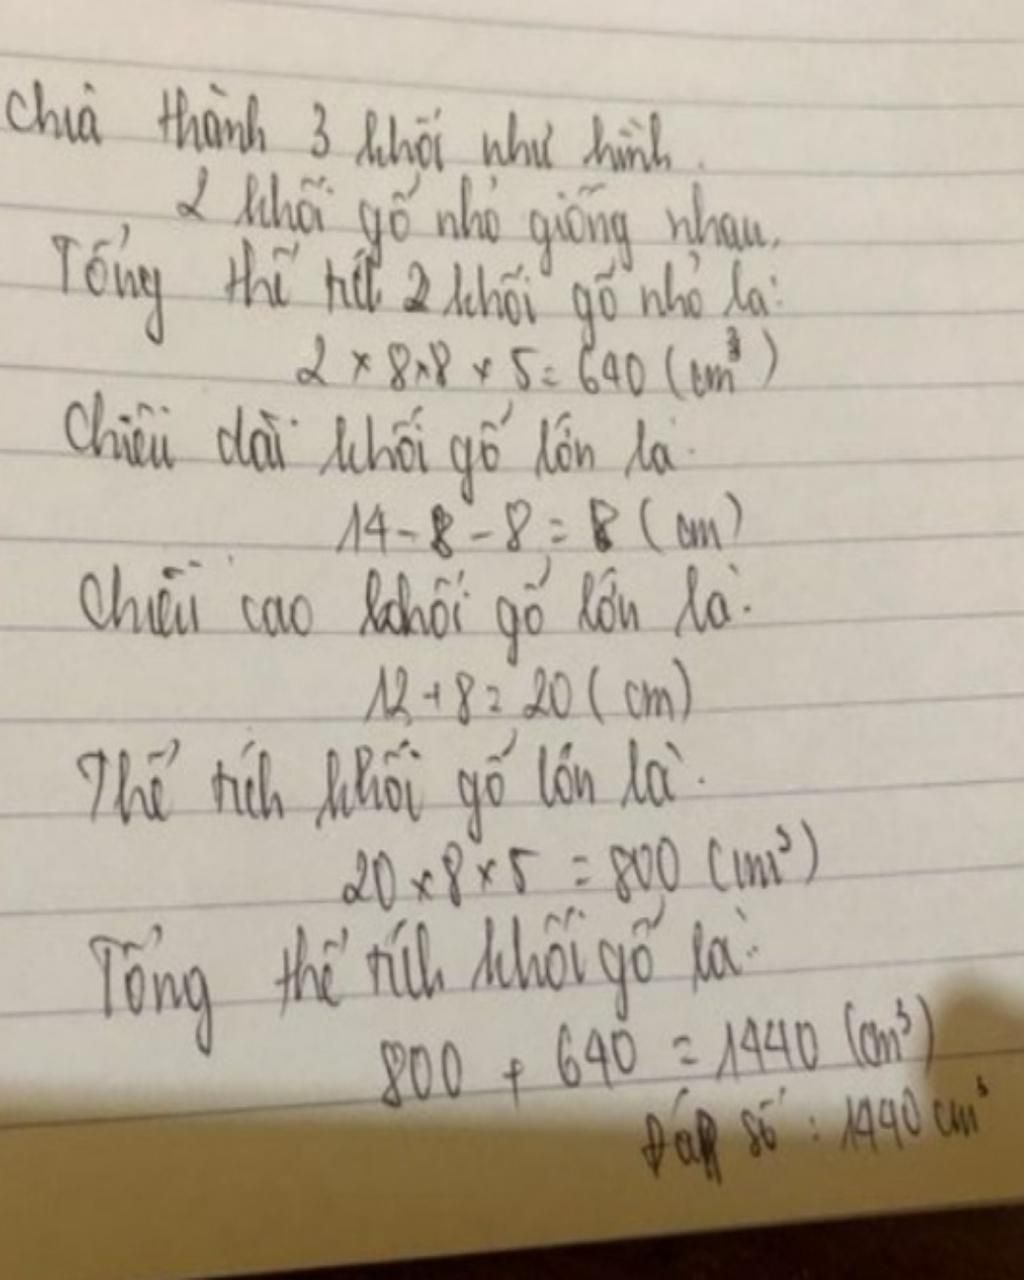 Chia thành 3 khối như hình.
2 khối gỗ nhỏ giống nhau.
Tổng thể tích 2 khối gỗ nhỏ là:
2 x 8 x 8 x 5 = 640 (cm³)
Chiều dài khối gỗ lớn là:
14 - 8 - 8 = 8 (cm)
Chiều cao khối gỗ lớn là:
12 + 8 = 20 (cm)
Thể tích khối gỗ lớn là:
20 x 8 x 5 = 800 (cm³)
Tổng thể tích khối gỗ là:
800 + 640 = 1440 (cm³)
Đáp số: 1440 cm³